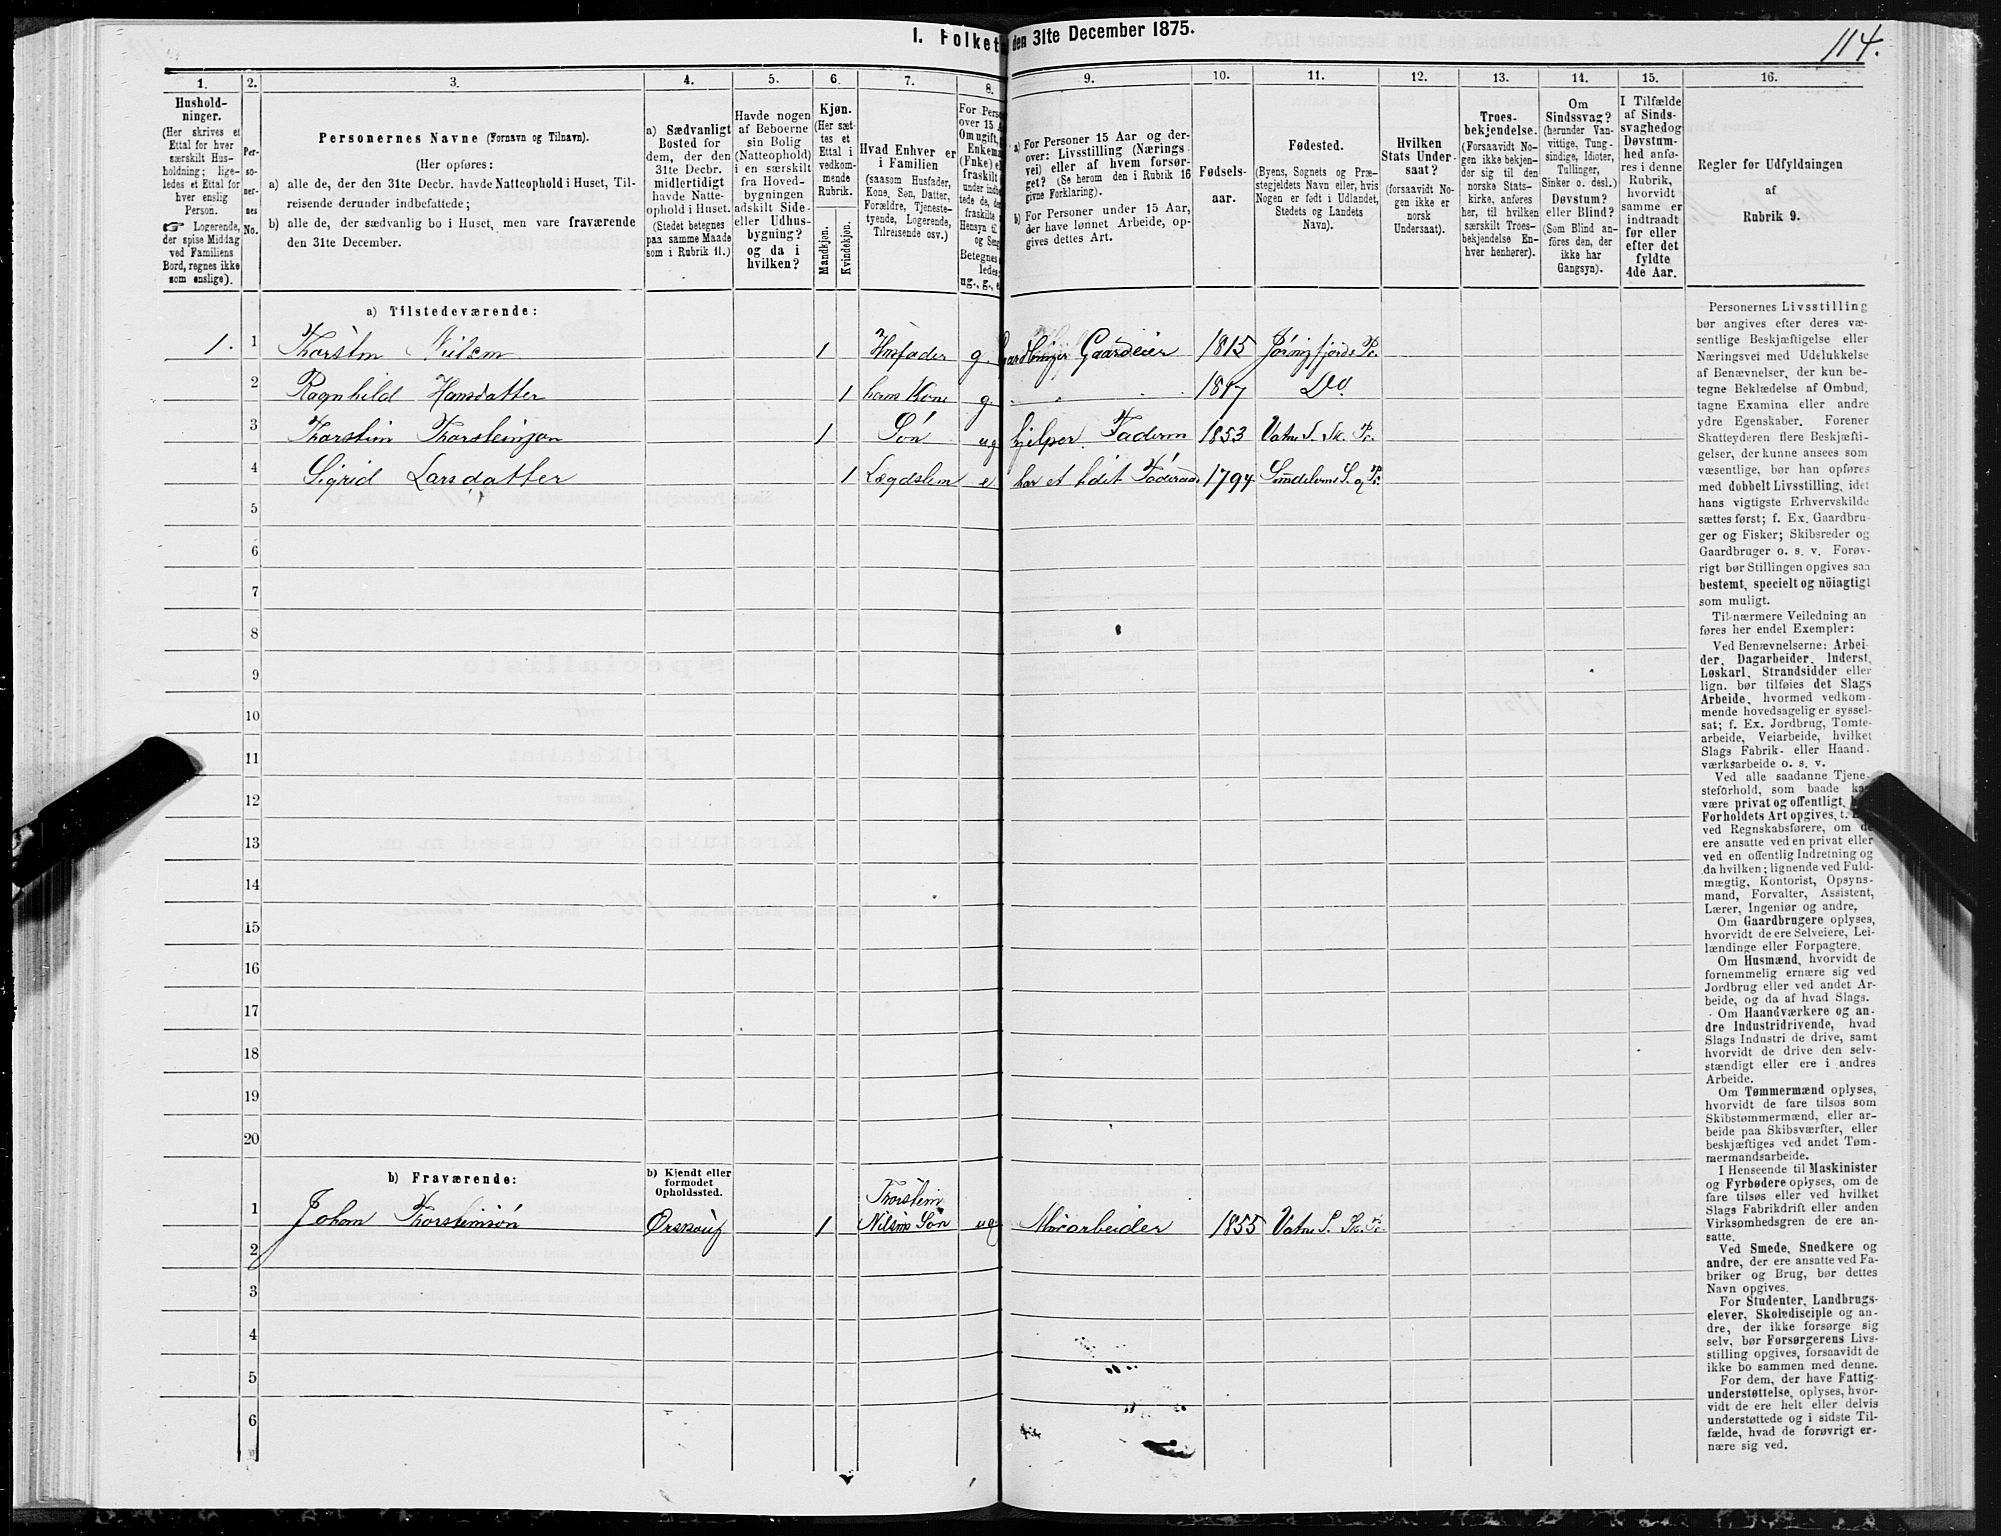 I. Folket
den 31te December 1875.
114.
1.
2.
3.
4.
5.
6.
7.
8.
9.
10.
11.
12.
13.
14.
15.
16.
Hushold-
ninger.
(Her skrives et
Ettal for hver
særskilt Hus-
holdning; lige-
ledes et Ettal for
hver enslig
Person.
☞ Logerende,
der spise Middag
ved Familiens
Bord, regnes ikke
som enslige).
Per-
so-
ner-
nes
No.
Personernes Navne (Fornavn og Tilnavn).
(Her opføres:
a) alle de, der den 31te Decbr. havde Natteophold i Huset, Til-
reisende derunder indbefattede;
b) alle de, der sædvanlig bo i Huset, men vare fraværende
den 31te December.
a) Sædvanligt
Bosted for
dem, der den
31te Decbr.
midlertidigt
havde Natte-
ophold i Huset.
(Stedet betegnes
paa samme Maade
som i Rubrik 11.)
Havde nogen
af Beboerne
sin Bolig
(Natteophold)
i en særskilt
fra Hoved-
bygningen
adskilt Side-
eller Udhus-
bygning?
og da i
hvilken?
Kjøn.
(Her sæt-
tes et
Ettal i
vedkom-
mende
Rubrik.
Mandkjøn.
Kvindekjøn.
Hvad Enhver er
i Familien
(saasom Husfader,
Kone, Søn, Datter,
Forældre, Tjeneste-
tyende, Logerende,
Tilreisende osv.)
For Pers
over 15 A
Om ugift,
Enkema
(Fuke) e
fraskilt
under indbe
tede de,
fraskilte
Hensyn til
og Seng
Betegnes
ledes:
ug., g., e
a) For Personer 15 Aar og der-
over: Livsstilling (Nærings
vei) eller af hvem forsør-
get? (Se herom den i Rubrik 16
givne Forklaring).
b) For Personer under 15 Aar,
der have lønnet Arbeide, op-
gives dettes Art.
Fødsels-
aar.
Fødested.
(Byens, Sognets og Præ-
stegjeldets Navn eller, hvis
Nogen er født i Udlandet,
Stedets og Landets
Navn).
Hvilken
Stats Under-
saat?
(forsaavidt No-
gen ikke er
norsk
Undersaat).
Troes-
bekjendelse.
(Forsaavidt No-
gen ikke bekjen-
der sig til den
norske Stats-
kirke, anføres
her, til hvilken
særskilt Troes-
bekjendelse En-
hver henhører).
Om
Sindssvag?
(herunder Van-
vittige, Tung-
sindige, Idioter,
Tullinger,
Sinker o. desl.)
Døvstum?
eller Blind?
(Som Blind an-
føres den, der
ikke har
Gangsyn).
I Tilfælde
af Sinds-
svaghedog
Døvstum-
hed anfø-
res i denne
Rubrik,
hvorvidt
samme er
indtraadt
før eller
efter det
fyldte
4de Aar.
Regler for Udfyldningen
af
Rubrik 9.
a) Tilstedeværende:
1. 1 Thorstein Nilsen 1 Husfader g. Gardbruger Gaardeier 1815 Jørngfjords Pr.
2 Ragnhild Hansdatter 1 hans Kone g. 1817 Do.
3 Thorstein Thorsteinson 1 Søn ug hjelper Faderen 1853 Vatne S. Sk. Pr.
4 Sigrid Larsdatter 1 Lægdslem e har et lidet Føderaad 1794 S. og Pr.
5
6
7
8
9
10
11
12
13
14
15
16
17
18
19
20
b) Fraværende:
b) Kjendt eller
formodet
Opholdssted.
1 Johan Thorsteinsøn Ørskoug 1 Thorstein
Nilsens Søn ug Murarbeider 1855 Vatne S. Sk. Pr.
2
3
4
5
6
Personernes Livsstilling
bør angives efter deres væ-
sentlige Beskjæftigelse eller
Næringsvei med Udelukkelse
af Benævnelser, der kun be-
tegne Beklædelse af Ombud,
tagne Examina eller andre
ydre Egenskaber. Forener
Skatteyderen flere Beskjæfti-
gelser, der kunne ansees som
væsentlige, bør han opføres
med dobbelt Livsstilling, idet
hans vigtigste Erhvervskilde
sættes først; f. Ex. Gaardbru-
ger og Fisker; Skibsreder og
Gaardbruger o. s. v. Forøv-
rigt bør Stillingen opgives saa
bestemt, specielt og nöiagtigt
som muligt.
Til nærmere Veiledning an
føres her endel Exempler:
Ved Benævnelserne: Arbei-
der, Dagarbeider, Inderst,
Løskarl, Strandsidder eller
lign. bør tilføies det Slags
Arbeide, hvormed vedkom-
mende hovedsagelig er syssel-
sat; f. Ex. Jordbrug, Tomte-
arbeide, Veiarbeide, hvilket
Slags Fabrik- eller Haand-
værksarbeide o. s. v.
Ved alle saadanne Tjene-
steforhold, som baade kan
være privat og offentligt,
Forholdets Art opgives, t.
ved Regnskabsførere, om de
ere ansatte ved en privat eller
ved en offentlig Indretning og
da hvilken; lignende ved Fuld-
mægtig, Kontorist, Opsyns-
mand, Forvalter, Assistent,
Lærer, Ingeniør og andre.
Om Gaardbrugere oplyses,
hvorvidt de ere Selveiere, Lei-
lændinge eller Forpagtere.
Om Husmænd, hvorvidt de
fornemmelig ernære sig ved
Jordbrug eller ved andet Ar-
beide, og da af hvad Slags.
Om Haandværkere og an-
dre Industridrivende, hvad
Slags Industri de drive, samt
hvorvidt de drive den selv-
stændigt eller ere i andres
Arbeide.
Om Tømmermænd oplyses,
hvorvidt de fare tilsøs som
Skibstømmermænd, eller ar-
beide paa Skibsværfter, eller
beskjæftiges ved andet Tøm-
mermandsarbeide.
I Henseende til Maskinister
og Fyrbødere oplyses, om de
fare tilsøs eller ved hvilket
Slags Fabrikdrift eller anden
Virksomhedsgren de ere an-
satte.
Ved Smede, Snedkere og
andre, der ere ansatte ved Fa-
briker og Brug, bør dettes
Navn opgives.
For Studenter, Landbrugs-
elever, Skoledisciple og an-
dre, der ikke forsørge sig
selv, bør Forsørgerens Livs-
stilling opgives, forsaavidt de
ikke bo sammen med denne.
For dem, der have Fattig-
understøttelse, oplyses, hvor-
vidt de ere helt eller delvis
understøttede og i sidste Til-
fælde, hvad de forøvrigt er-
nære sig ved.